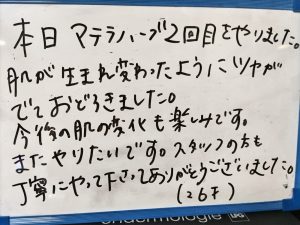 本日マテラハーブ2回目をやりました。
肌が生まれ変わったようにツヤが
でておどろきました。
今後の肌の変化も楽しみです。
またやりたいです。スタッフの方も
丁寧にやって下さってありがとうございました。
(26才)
endermologie LPG